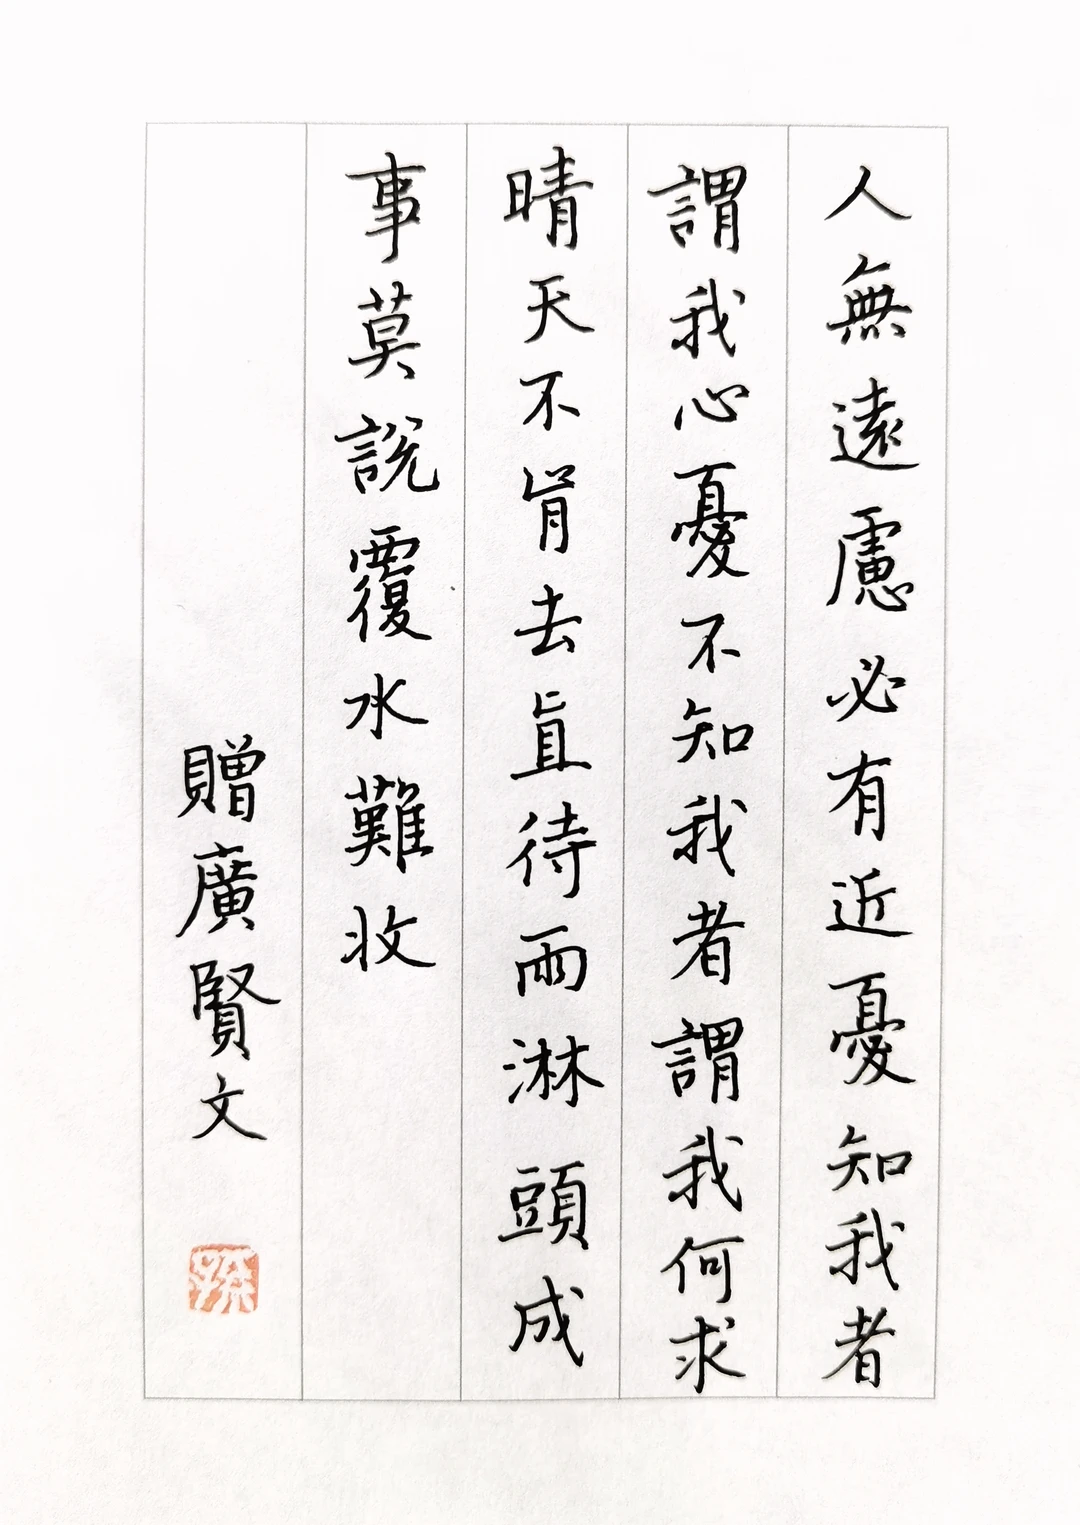 人無遠慮必有近憂知我者
謂我心憂不知我者謂我何求
晴天不肯去直待雨淋頭成
事莫說覆水難收
贈廣賢文
孫